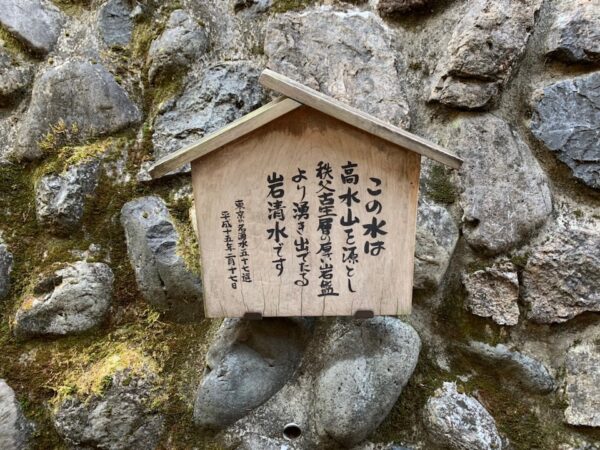 この水は
高水山を源とし
秩父古生層の厚い岩盤
より湧き出でたる
岩清水です
東京の名湧水五十七選
平成十五年一月十七日